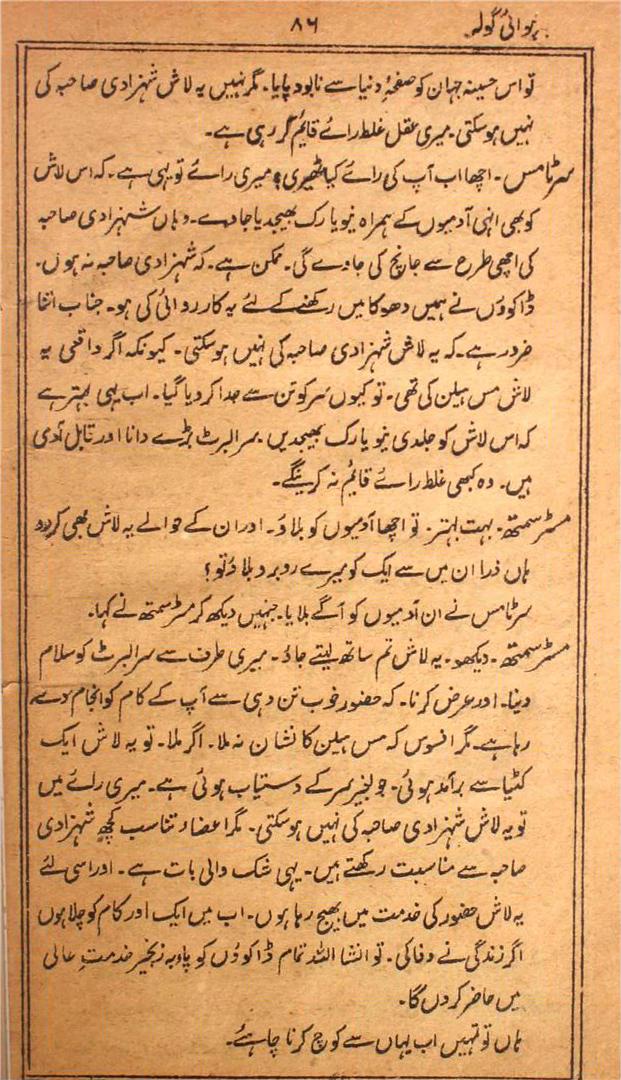 ہوائی گولہ
۸۶
تو اس حسینہ جہان کو صفحۂ دنیا سے نابود پایا۔ مگر نہیں یہ لاش شہزادی صاحبہ کی
نہیں ہوسکتی۔ میری عقل غلط رائے قایم کر رہی ہے۔
سرٹامس۔ اچھا اب آپ کی رائے کیا ٹھیری؟ میری رائے تو یہی ہے۔ کہ اس لاش
کو بھی انہی آدمیوں کے ہمراہ نیو یارک بھیجدیا جاوے۔ وہاں شہزادی صاحبہ
کی اچھی طرح سے جانچ کی جاوے گی۔ ممکن ہے۔ کہ شہزادی صاحبہ نہ ہوں۔
ڈاکوؤں نے ہمیں دھوکا میں رکھنے کے لئے یہ کارروائی کی ہو۔ جناب اتنا
ضرور ہے۔ کہ یہ لاش شہزادی صاحبہ کی نہیں ہوسکتی۔ کیونکہ اگر واقعی یہ
لاش مس ہیلن کی تھی۔ تو کیوں سر کو تن سے جدا کر دیا گیا۔ اب یہی بہتر ہے
کہ اس لاش کو جلدی نیو یارک بھیجدیں۔ سر البرٹ بڑے دانا اور قابل آدمی
ہیں۔ وہ کبھی غلط رائے قایم نہ کرینگے۔
مسٹر سمتھ۔ بہت بہتر۔ تو اچھا آدمیوں کو بلاؤ۔ اور ان کے حوالے یہ لاش بھی کردو
ہاں ذرا ان میں سے ایک کو میرے روبرو بلاؤ تو؟
سرٹامس نے ان آدمیوں کو آگے بلایا۔ جنہیں دیکھ کر مسٹر سمتھ نے کہا۔
مسٹر سمتھ۔ دیکھو۔ یہ لاش تم ساتھ لیتے جاؤ۔ میری طرف سے سر البرٹ کو سلام
دینا۔ اور عرض کرنا۔ کہ حضور خوب تن دہی سے آپ کے کام کو انجام دے
رہا ہے۔ مگر افسوس کہ مس ہیلن کا نشان نہ ملا۔ اگر ملا۔ تو یہ لاش ایک
کٹیا سے برآمد ہوئی۔ جو بغیر سر کے دستیاب ہوئی ہے۔ میری رائے میں
تو یہ لاش شہزادی صاحبہ کی نہیں ہوسکتی۔ مگر اعضاء تناسب کچھ شہزادی
صاحبہ سے مناسبت رکھتے ہیں۔ یہی شک والی بات ہے۔ اور اسی لئے
یہ لاش حضور کی خدمت میں بھیج رہا ہوں۔ اب میں ایک اور کام کو چلا ہوں
اگر زندگی نے وفا کی۔ تو انشا اللہ تمام ڈاکوؤں کو پاؤ بہ زنجیر خدمتِ عالی
میں حاضر کردں گا۔
ہاں تو تمہیں اب یہاں سے کوچ کرنا چاہئے۔